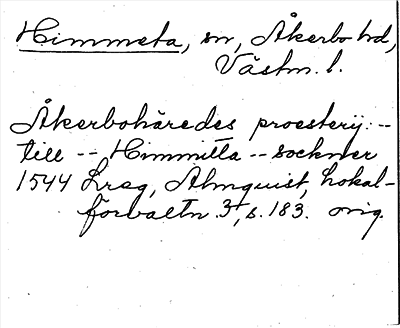 Himmeta, sn, Åkerbo hd,
Västm. l.
Åkerbohäredes proesterij --
till -- Himmitta -- sockner
1544 Lreg, Almquist, Lokal-
förvaltn. 3, s. 183. orig.